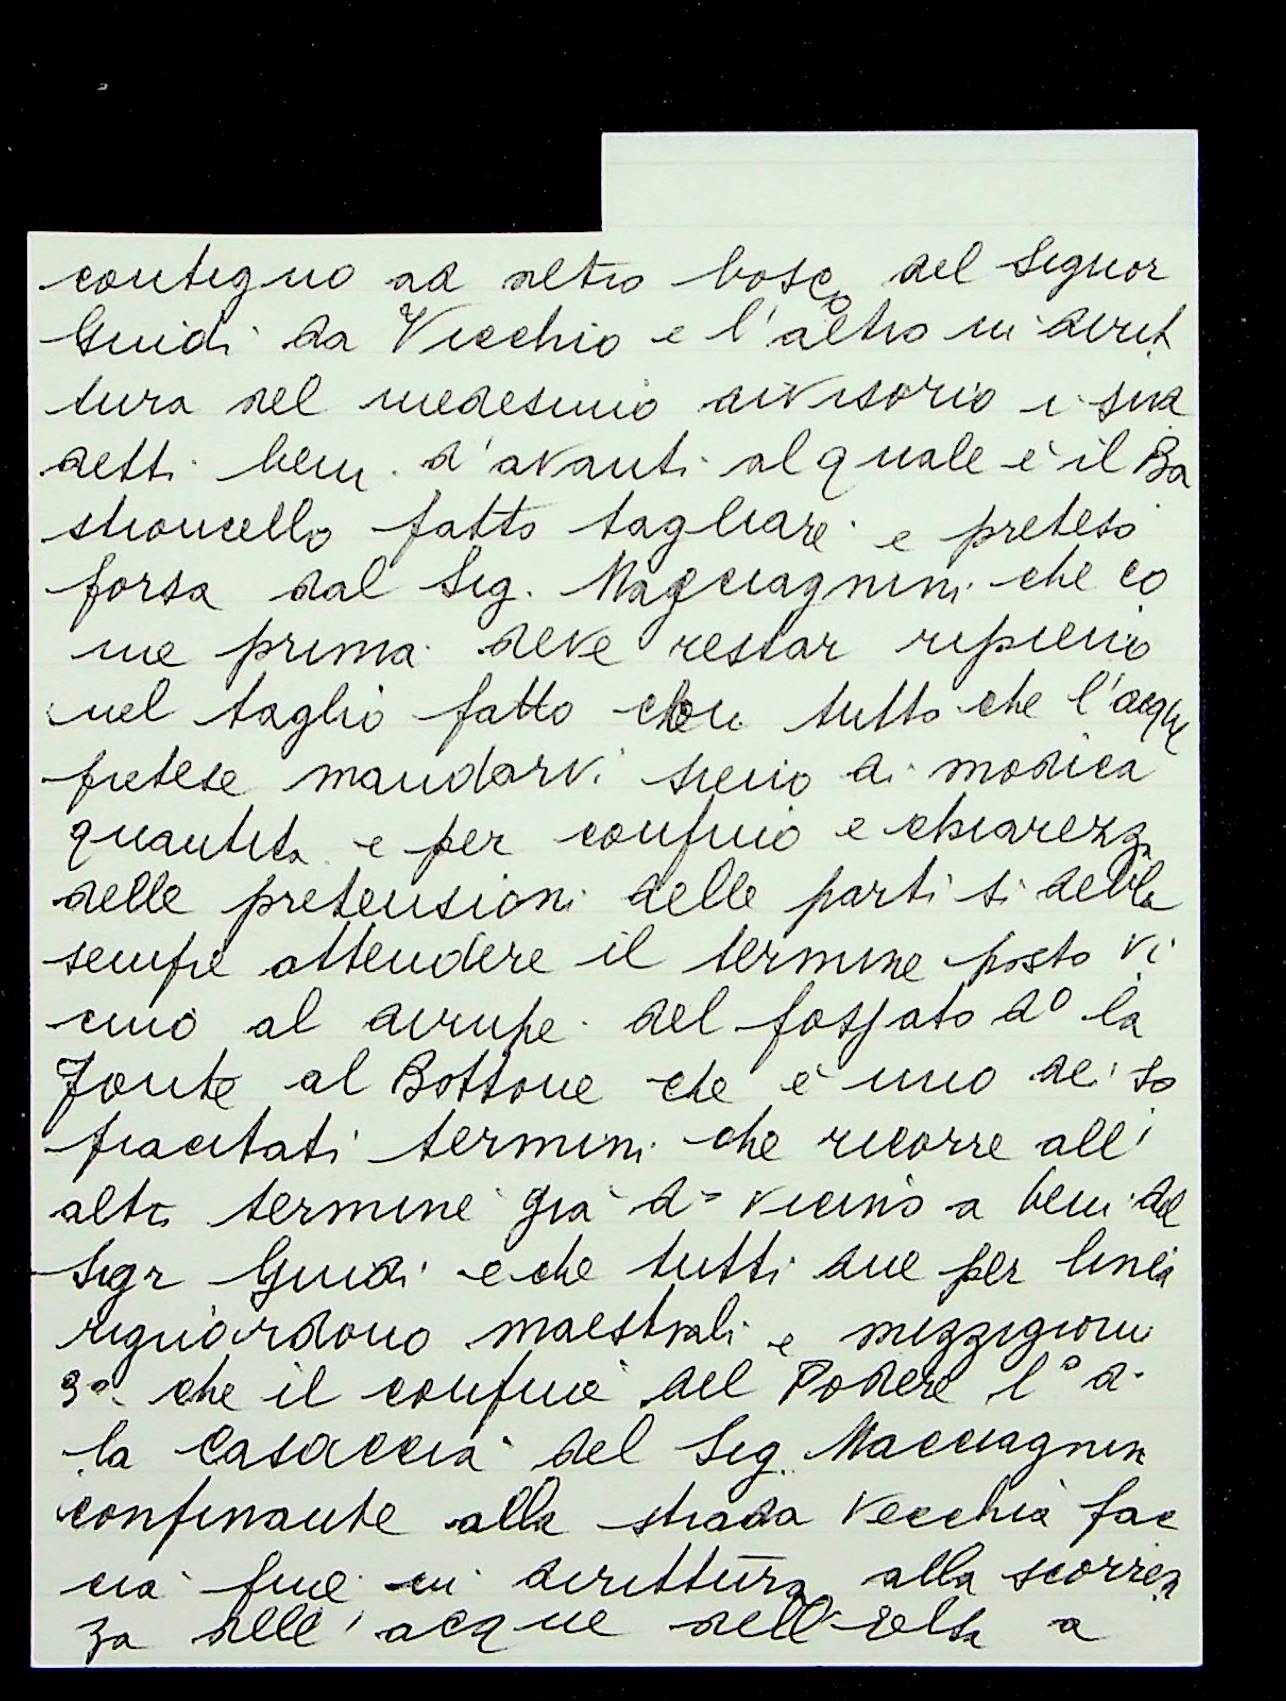 contiguo ad altro bosco del Signor
Guidi da Vicchio e l'altro in dirit
tura del medesimo divisorio i sud
detti beni d'avanti al quale è il Ba
stioncello fatto tagliare e preteso
forsa dal Sig. Macciagnini che co
me prima deve restar ripieno
nel taglio fatto con tutto che l'acque
pretese mandarvi sieno di modica
quantita e per confino e chiarezza
delle pretensioni delle parti si debba
sempre attendere il termine posto vi
cino al dirupe del fossato do la
Fonte al Bottone che è uno dei so
pracitati termini che ricorre all'
altro termine già do vicino a beni del
Sigr Guidi e che tutti due per linea
riguardono maestrali e mezzigiorni
3o che il confine del Podere lo di
la Casaccia del Sig. Macciagnini
confinante alla strada vecchia fac
cia fine in dirittura alla scorren
za dell'acque dell'Elsa a